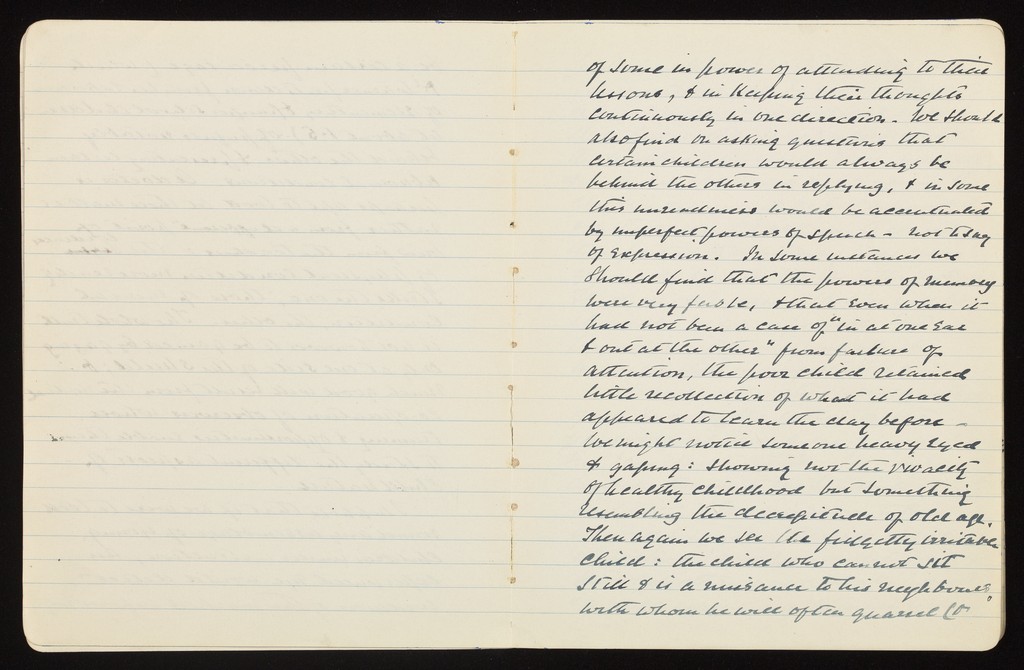 of some in power of attending to their
lessons, & in keeping their thoughts
continuously in one direction. We should
also find on asking questions that
certain children would always be
behind the others in replying, & in some
this unreadiness would be accentuated
by imperfect powers of speech - not to say
of expression. In some instances we
should find that the powers of memory
were very feeble, & that even when it
had not been a case of "in at one ear
& out at the other" from failure of
attention, the poor child retained
little recollection of what it had
appeared to learn the day before -
We might notice someone heavy eyed
& gaping: showing not the vivacity
of healthy childhood but something
resembling the decrepitude of old age.
Then again we see the fidgetty irritable
child: the child who cannot sit
still & is a nuisance to his neighbours
with whom he will often quarrel